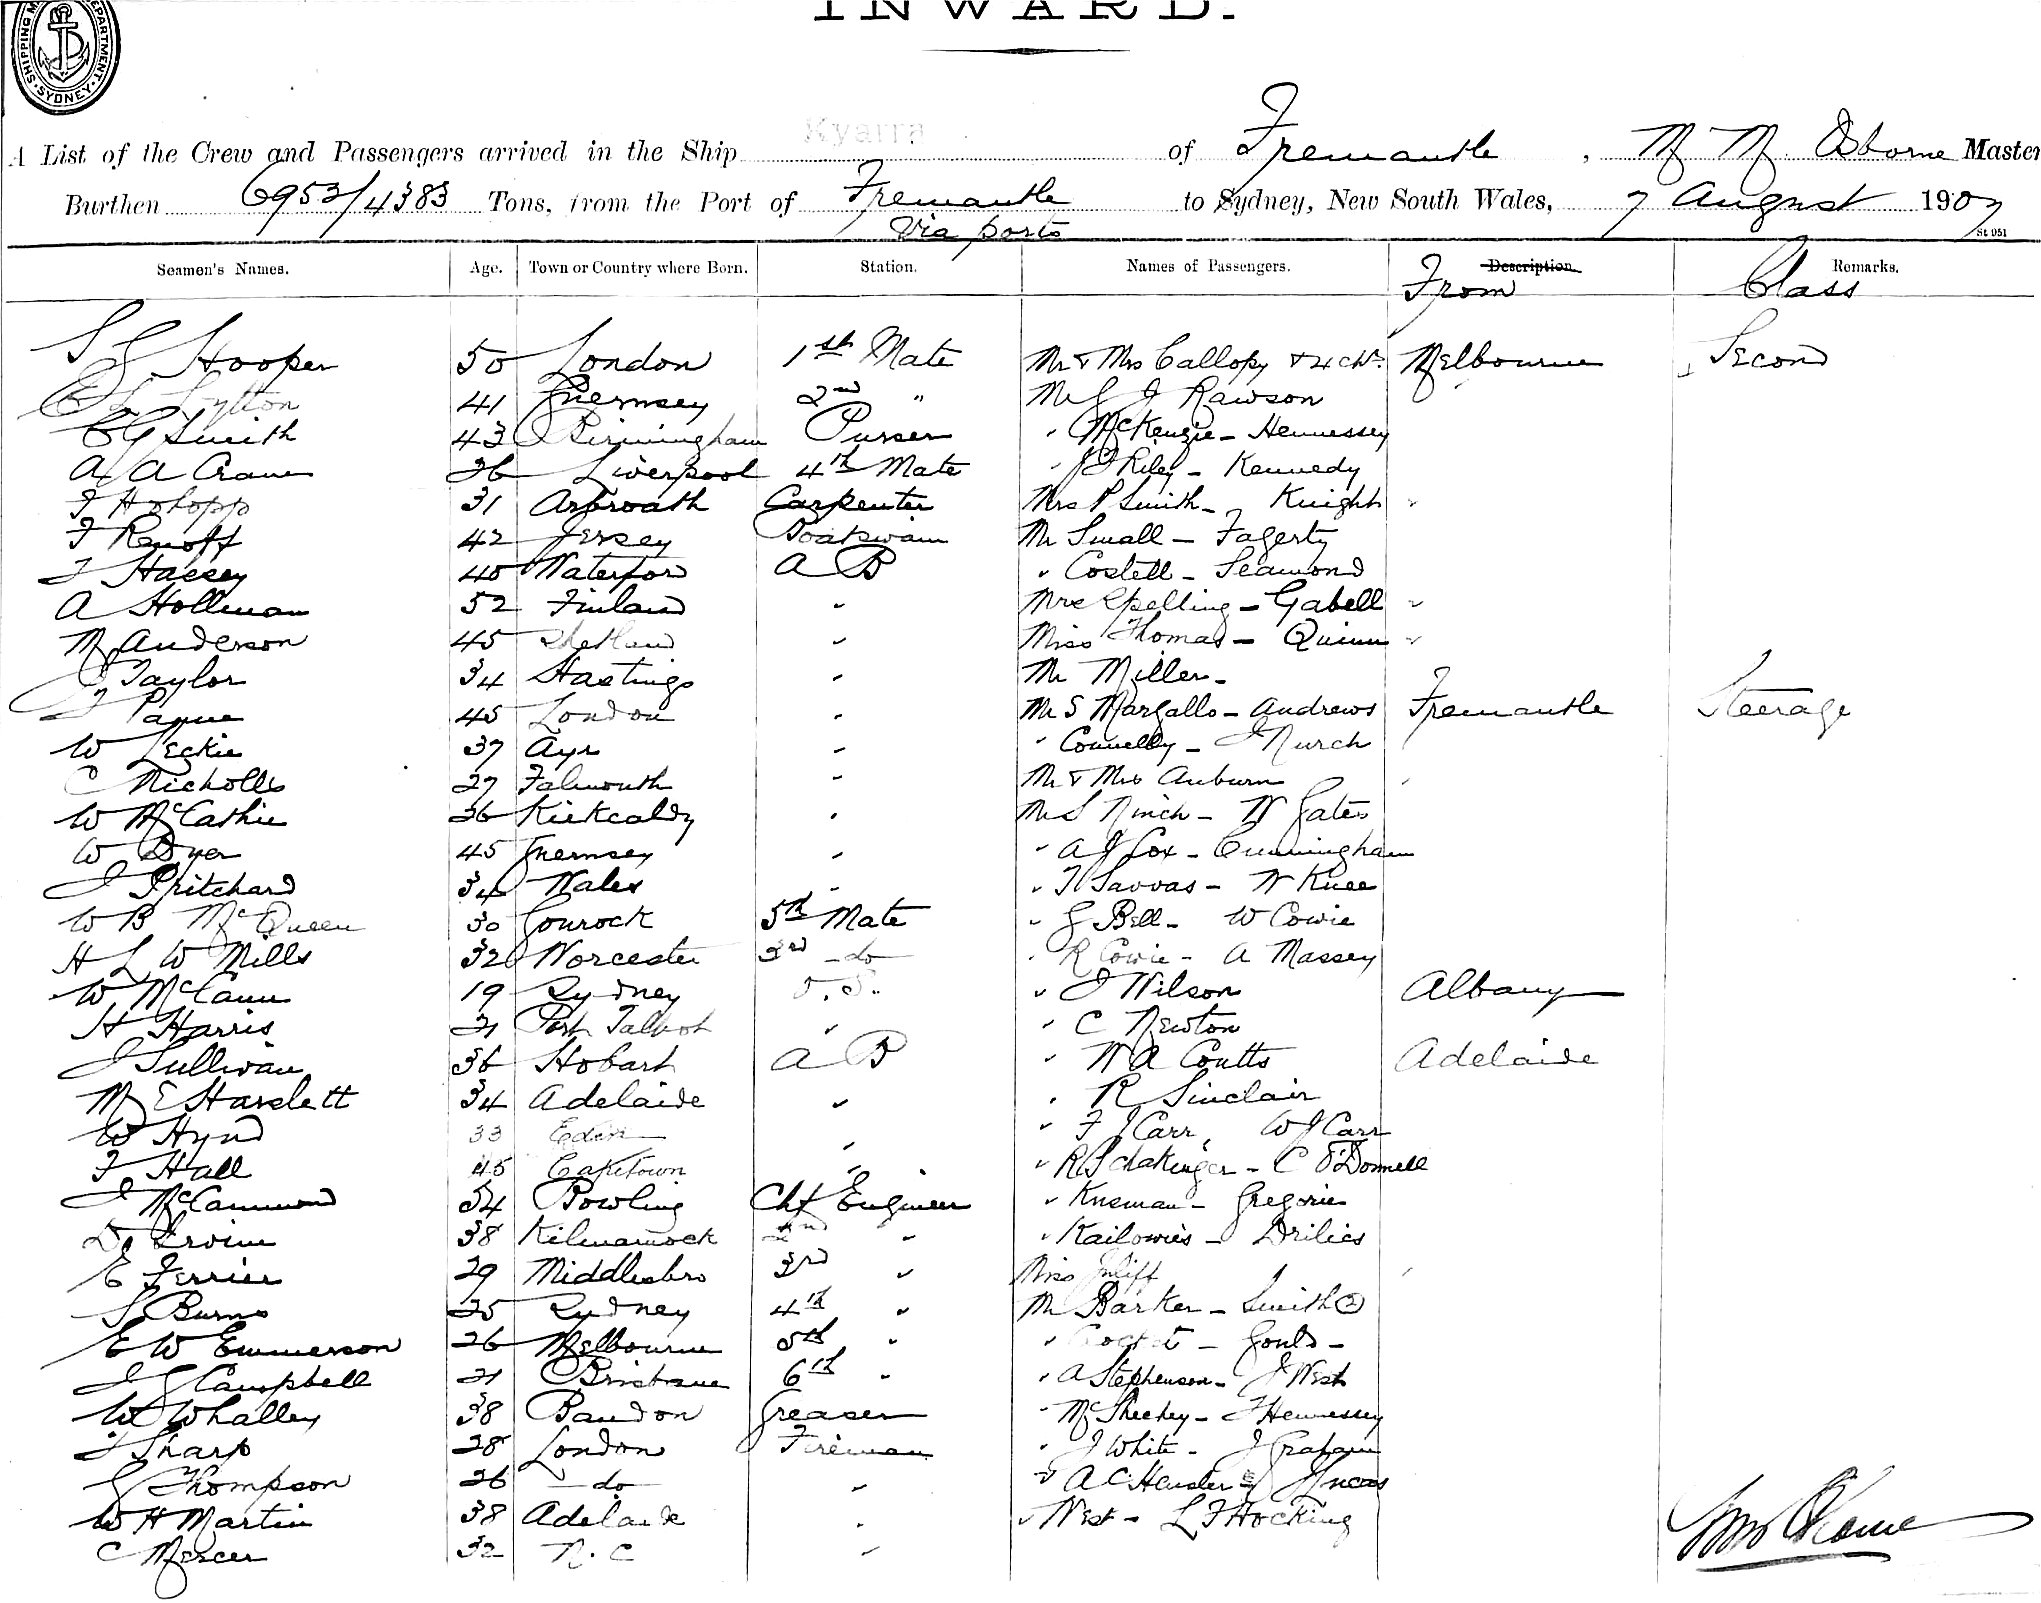 INWARD.
SHIPPING DEPARTMENT SYDNEY
A List of the Crew and Passengers arrived in the Ship Kyarra of Fremantle, M M Osborne Master
Burthen 6953/4383 Tons, from the Port of Fremantle to Sydney, New South Wales, 7 August 1907
Via ports
St 951
Seamen's Names. Age. Town or Country where Born. Station. Names of Passengers. Description. Remarks.
From Class
S G Hooper 50 London 1st Mate Mr & Mrs Callopy & 4 chn. Melbourne Second
Lytton 41 Guernsey 2nd " Mr G J Rawson
C G Smith 43 Birmingham Purser " McKenzie - Hennessey
A A Crane 26 Liverpool 4th Mate " J J Riley - Kennedy
31 Arbroath Carpenter Mrs P Smith - Knight "
F Renoff 42 Jersey Boatswain Mr Small - Fagerty
40 Waterford A B " Costell - Seamond
A Hollman 52 Finland " Mrs Spelling - Gabell "
M Anderson 45 Shetland " Miss Thomas - Quinn "
Taylor 34 Hastings " Mr Miller -
Payne 45 London " Mr S Margallo - Andrews Fremantle Steerage
W Leckie 37 Ayr " " Connelly - J Nurch
C Nicholls 27 Falmouth " Mr & Mrs Auburn
W McCathie 26 Kirkcaldy " Mr S Ninch - W Gates
W Dyer 45 Guernsey " " A J Cox - Cunningham
J Pritchard 34 Wales " " T Savvas - W Knee
W B McQueen 30 Gourock 5th Mate " G Bell - W Cowie
H L W Mills 32 Worcester 3rd - do " R Cowie - A Massey
W McCann 19 Sydney " J Wilson Albany
H Harris 21 Port Talbot " " C Newton
J Sullivan 36 Hobart A B " W A Coutts Adelaide
M E Harslett 34 Adelaide " " R Sinclair
W Hynd 33 Eden " " F J Carr, W J Carr
F Hall 45 Capetown " " C O'Donnell
J McCammond 54 Bowling Chf Engineer " Knsman - Gregorie
D Irvine 38 Kilmarnock 2nd " " Kailowies - Drilies
E Ferrier 29 Middlesbro 3rd " Miss Juliff
S Burns 25 Sydney 4th " Mr Barker - Smith (2)
E W Emmerson 26 Melbourne 5th " " - Gould -
J G Campbell 21 Brisbane 6th " " A Stephenson - J West
W Whalley 38 Bandon Greaser " McSheehey - J Hennessey
J Sharp 28 London Fireman " J White - J Graham
G Thompson 26 - do " " A C Hensler - J Lucas
W H Martin 38 Adelaide " " West - L F Hocking
C Mercer 32 N. C "